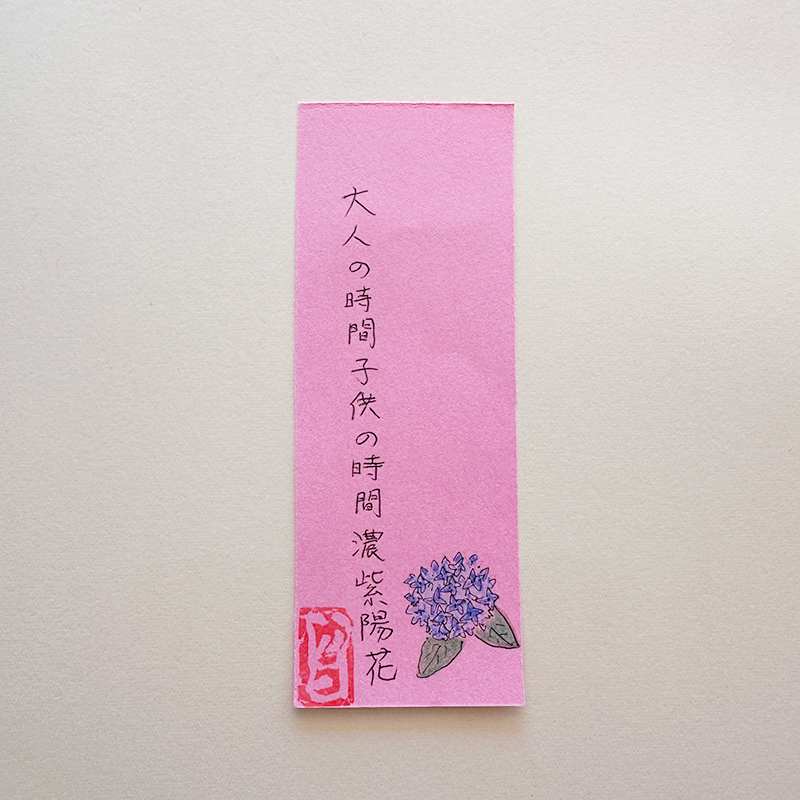 大人の時間子供の時間濃紫陽花